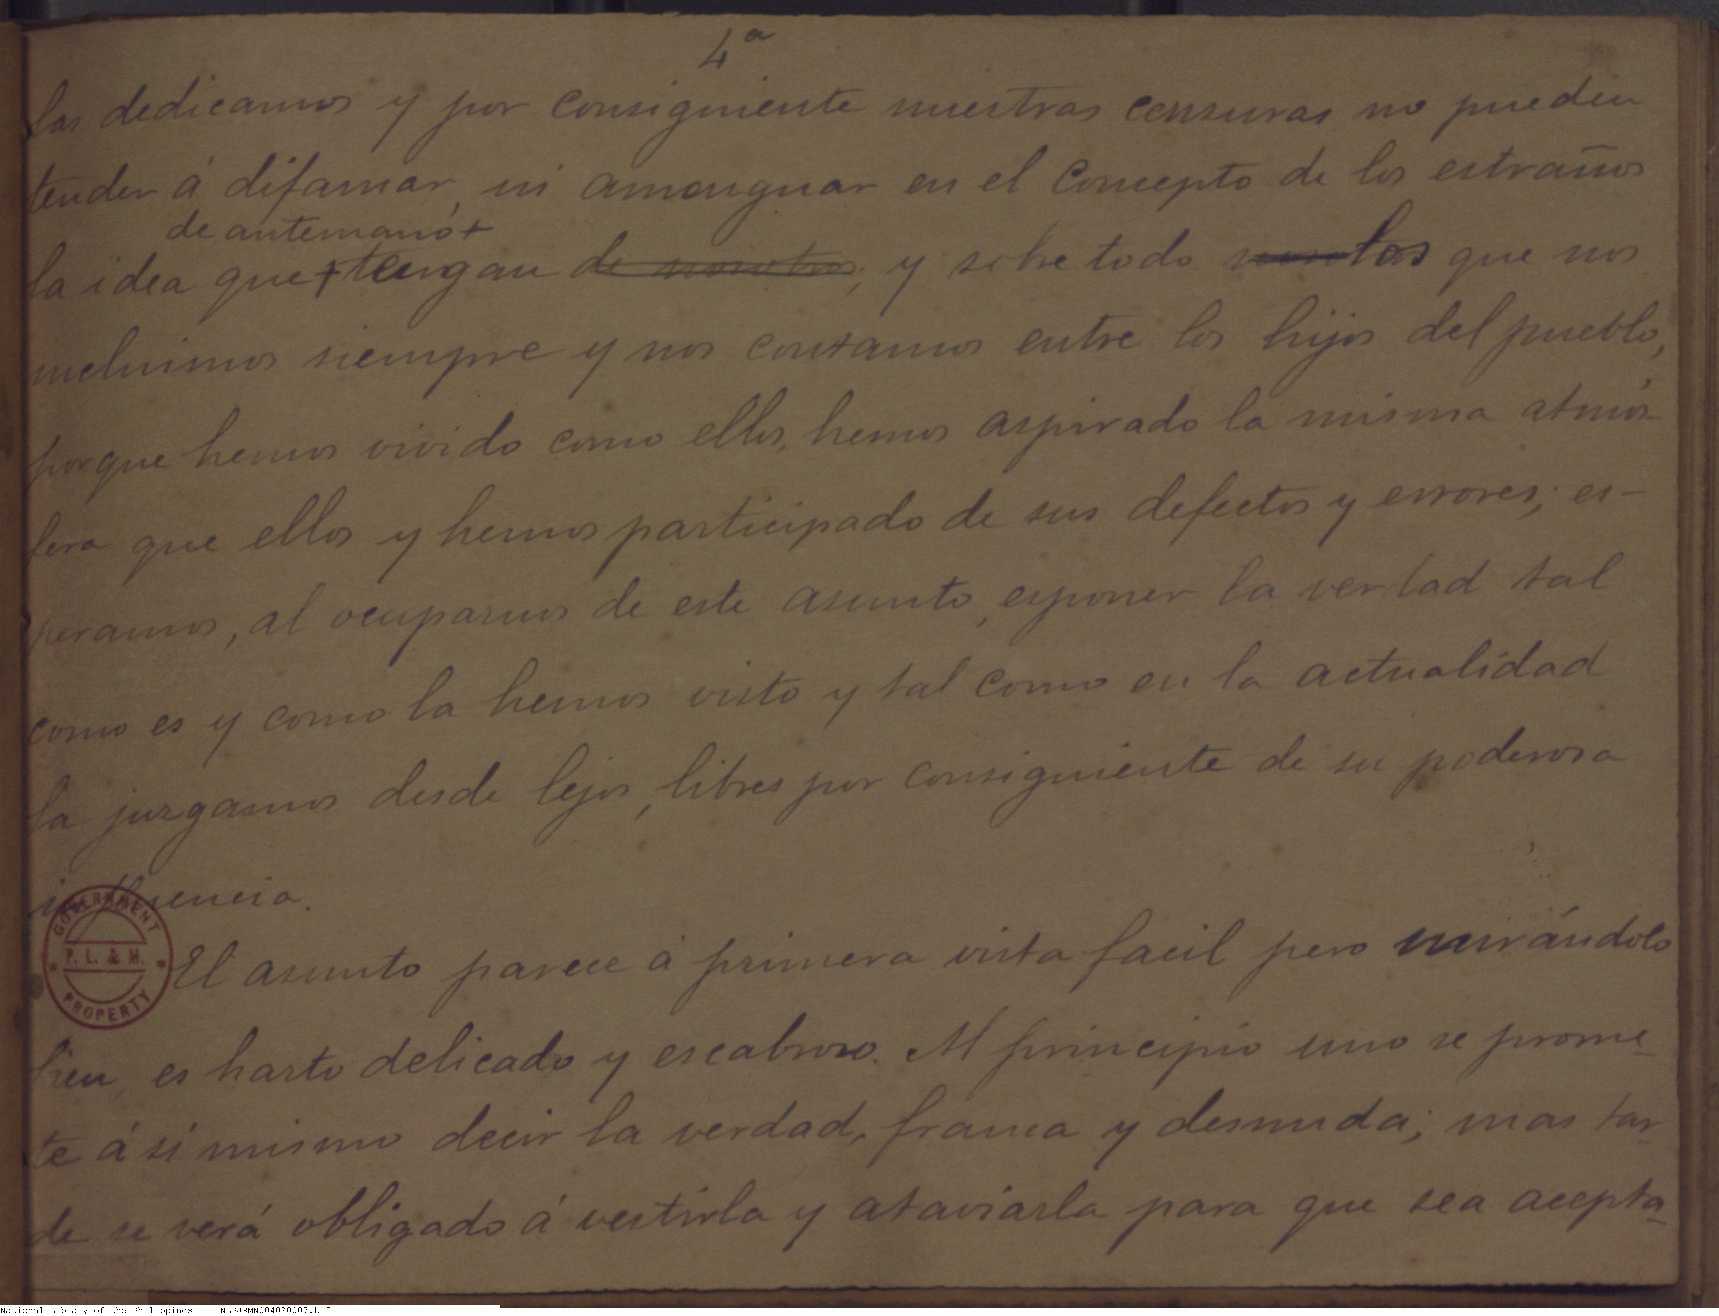 4ª
las dedicamos y por consiguiente nuestras censuras no pueden
tender á difamar, ni amenguar en el concepto de los estraños
de antemano +
la idea que + tengan de nosotros, y sobre todo los que nos
incluimos siempre y nos contamos entre los hijos del pueblo,
porque hemos vivido como ellos, hemos aspirado la misma atmós
fera que ellos y hemos participado de sus defectos y errores; es-
peramos, al ocuparnos de este asunto, esponer la verdad tal
como es y como la hemos visto y tal como en la actualidad
la juzgamos desde lejos, libres por consiguiente de su poderosa
influencia.
El asunto parece á primera vista facil pero mirándolo
bien, es harto delicado y escabroso. Al principio uno se prome-
te á sí mismo decir la verdad, franca y desnuda; mas tar-
de se verá obligado á vestirla y ataviarla para que sea acepta-
GOVERNMENT
P. L. & M.
PROPERTY
National Library of the Philippines